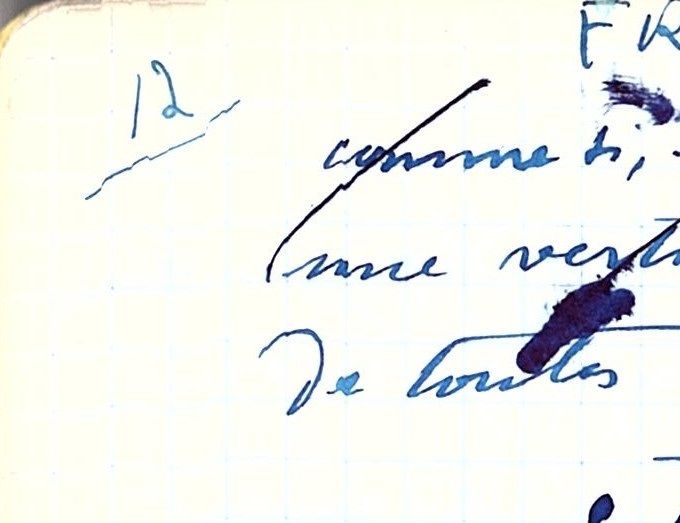 FR
12
comme si,
une vertu
De toutes